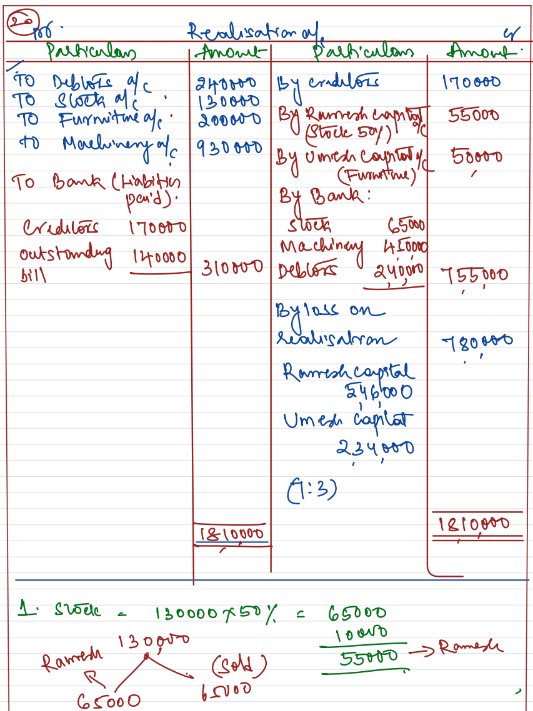 20
Dr. Realisation a/c Cr
Particulars Amount Particulars Amount.
TO Debtors a/c 240000 By creditors 170000
TO Stock a/c. 130000 By Ramesh capital a/c 55000
(Stock 50%)
TO Furniture a/c. 200000
to Machinery a/c 930000 By Umesh Capital a/c 50000
(Furniture)
To Bank (Liabilities By Bank:
paid).
Stock 65000
Creditors 170000 Machinery 450000
outstanding 140000 310000 Debtors 240,000 755000
bill
By loss on
realisation 780000
Ramesh capital
546000
Umesh Capital
234000
(7:3)
1810000 1810000
1. Stock = 130000 × 50% = 65000
10000
130000 55000 → Ramesh
Ramesh (Sold)
65000 65000